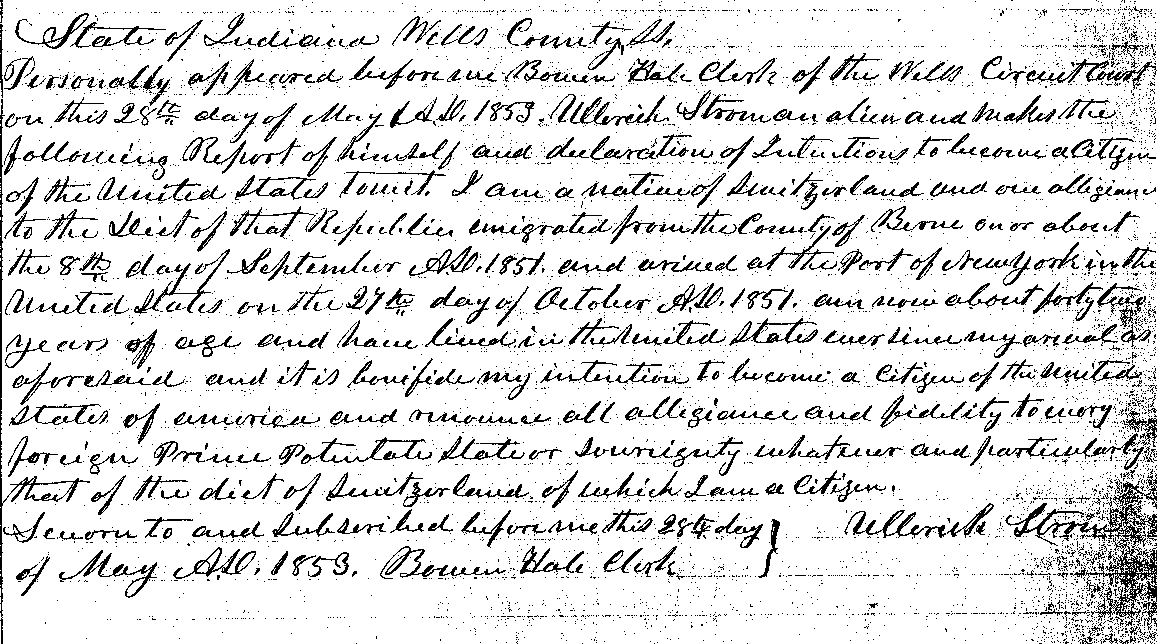 State of Indiana Wells County, Ss.
Personally appeared before me Bowen Hale Clerk of the Wells Circuit Court
on this 28th day of May A.D. 1853. Ullerich Stroman alien and makes the
following Report of himself and declaration of Intentions to become a Citizen
of the United States towit. I am a native of Switzerland and owe allegiance
to the Diet of that Republic emigrated from the County of Berne on or about
the 8th day of September A.D. 1851. and arived at the Port of New York in the
United States on the 27th day of October A.D. 1851. am now about forty two
years of age and have lived in the United States ever since my arival as
aforesaid and it is bonifide my intention to become a Citizen of the United
States of america and renounce all allegiance and fidelity to every
foreign Prince Potentate State or Sovreignty whatever and particularly
that of the diet of Switzerland of which I am a Citizen.
Sworn to and Subscribed before me this 28th day } Ullerich Strom
of May A.D. 1853. Bowen Hale Clerk